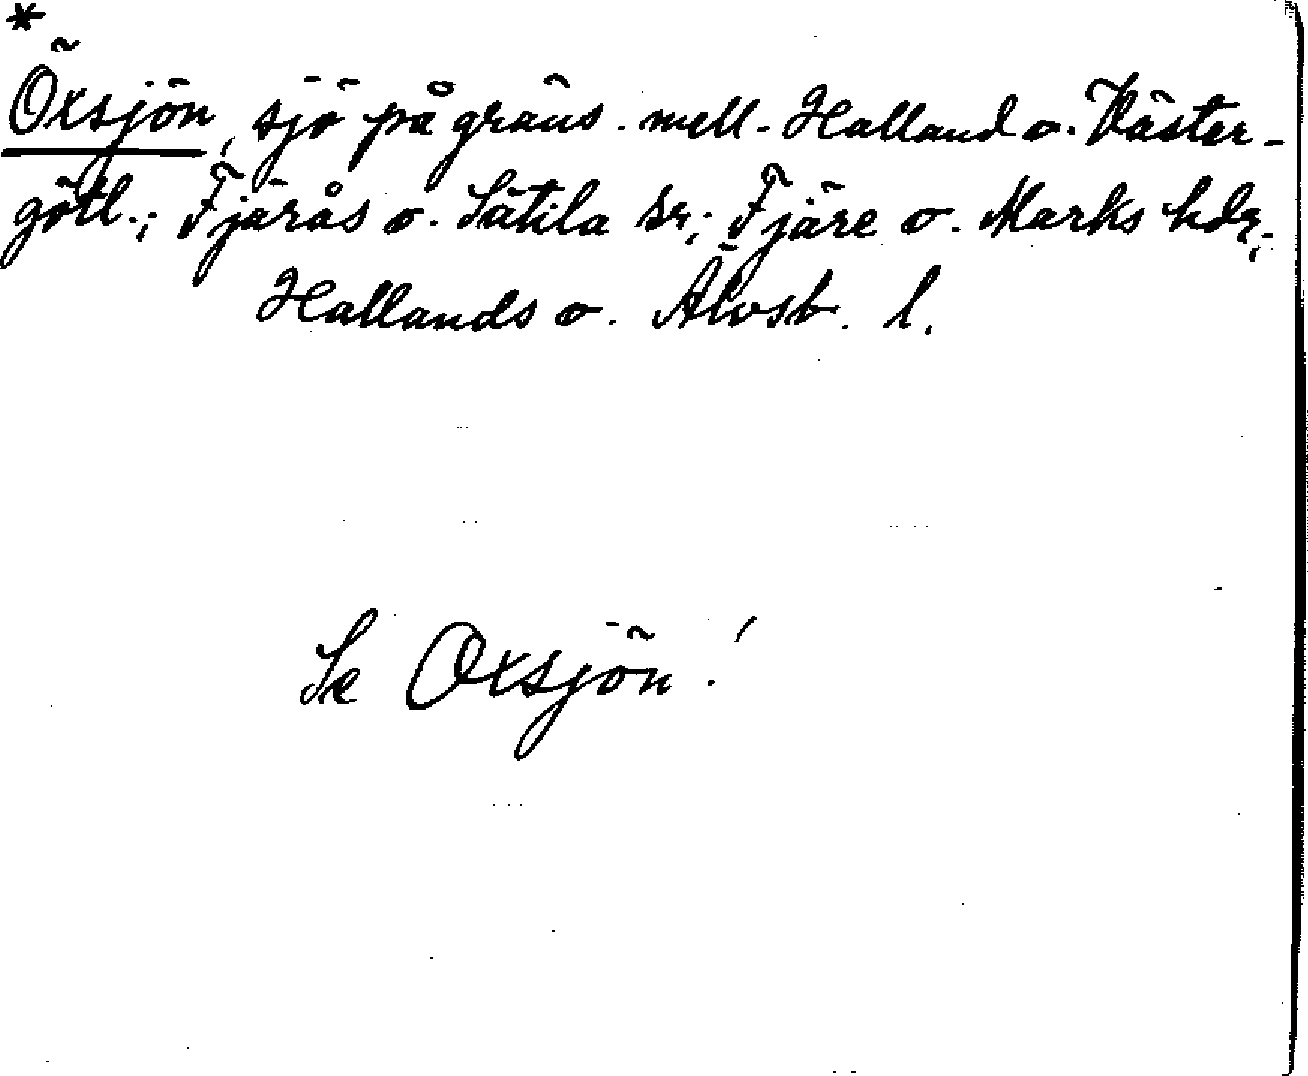 *
Öxsjön, sjö på gräns. mell. Halland o. Väster-
götl.; Fjärås o. Sätila snr; Fjäre o. Marks hdr;
Hallands o. Älvsb. l.
Se Oxsjön!